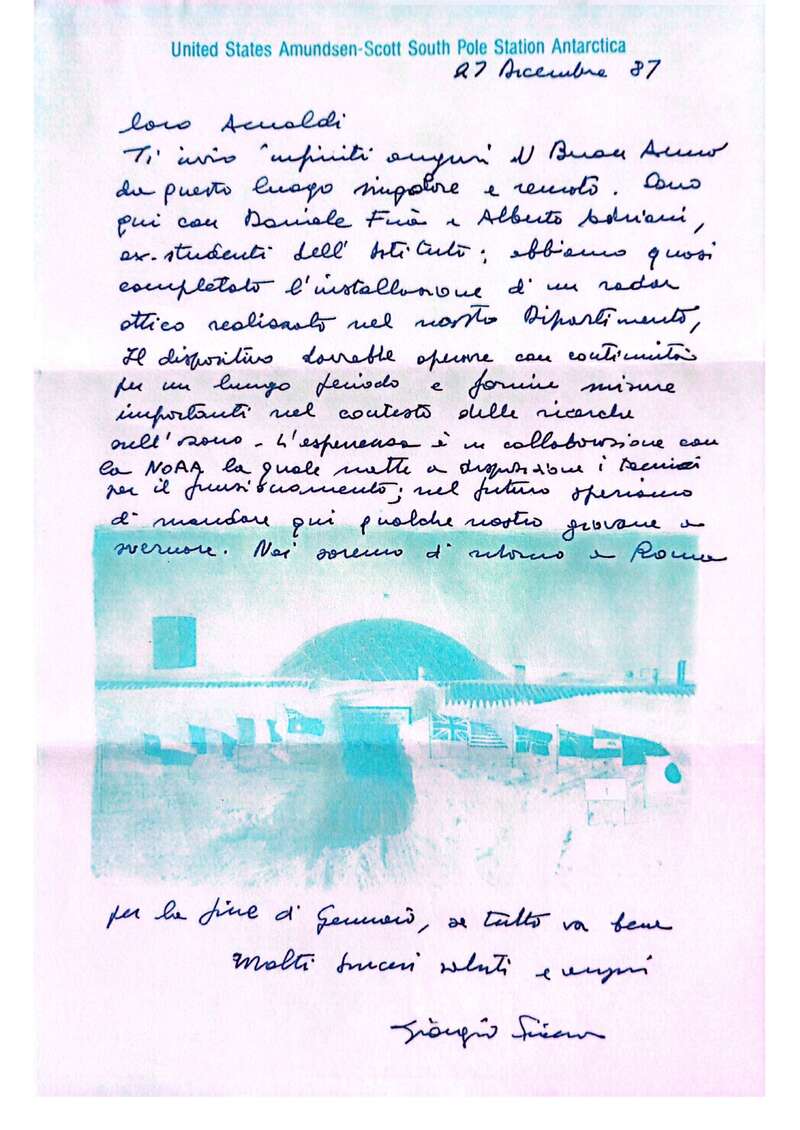 United States Amundsen-Scott South Pole Station Antarctica
27 Dicembre 87
Caro Amaldi
Ti invio infiniti auguri di Buon Anno
da questo luogo singolare e remoto. Sono
qui con Daniele Fuà e Alberto Adriani,
ex-studenti dell'Istituto; abbiamo quasi
completato l'installazione di un radar
ottico realizzato nel nostro Dipartimento,
Il dispositivo dovrebbe operare con continuità
per un lungo periodo e fornire misure
importanti nel contesto delle ricerche
sull'ozono - L'esperienza è in collaborazione con
la NOAA la quale mette a disposizione i tecnici
per il funzionamento; nel futuro speriamo
di mandare qui qualche nostro giovane a
svernare. Noi saremo di ritorno a Roma
per la fine di Gennaio, se tutto va bene
Molti sinceri saluti e auguri
Giorgio